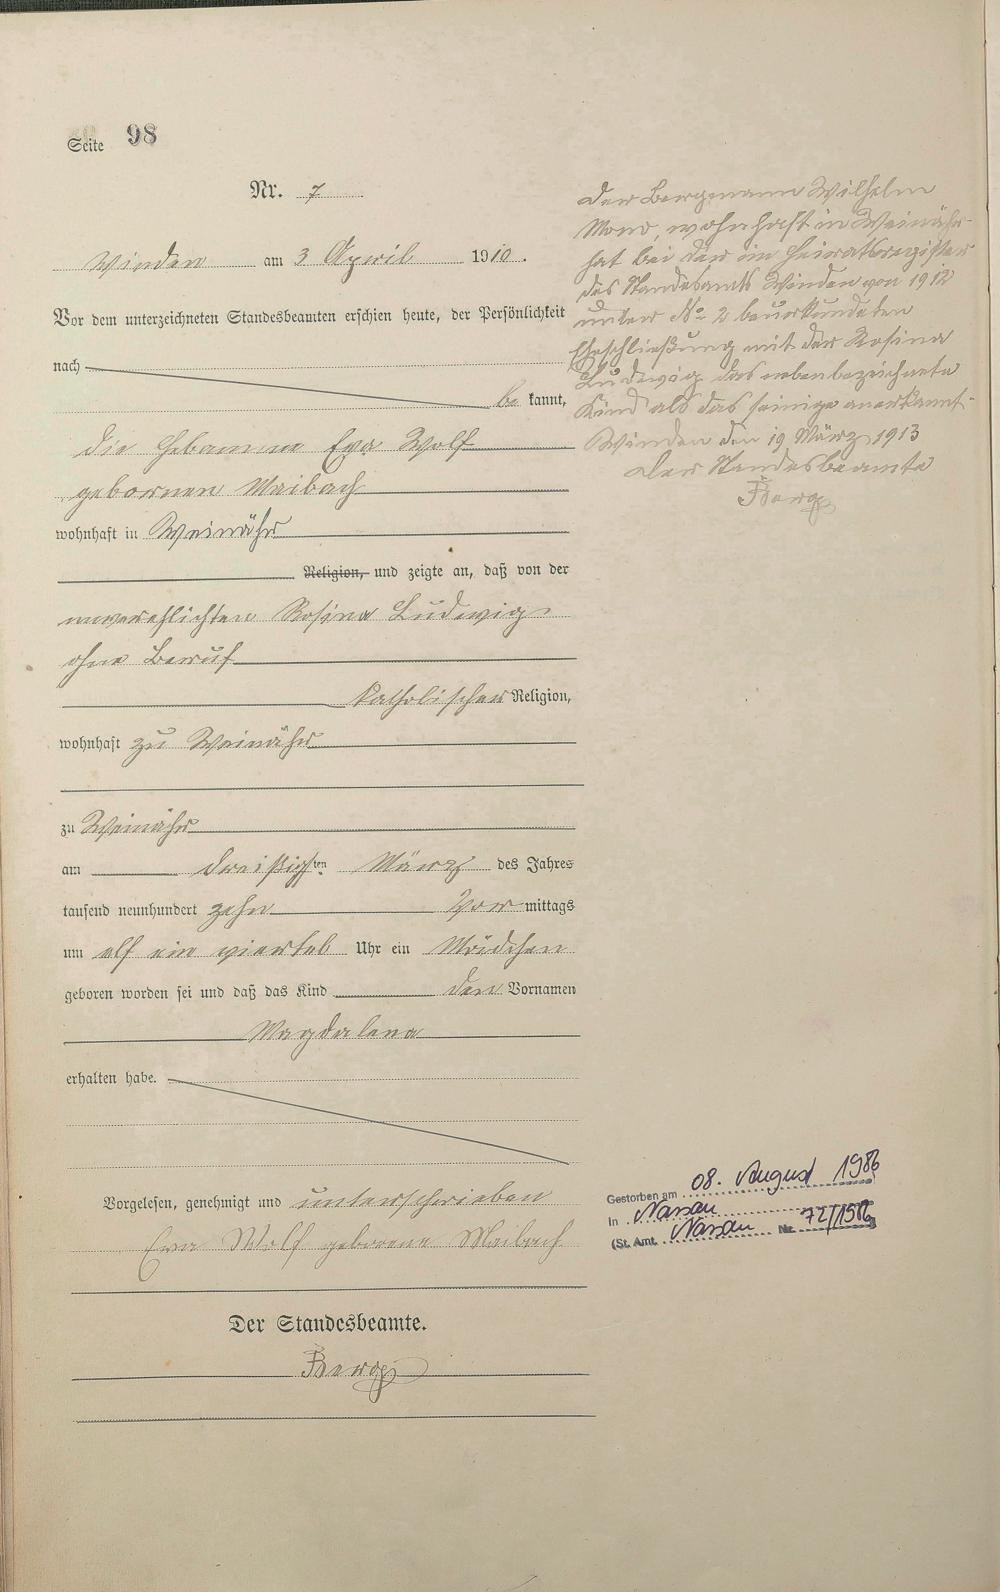 Seite 98
Nr. 7
Winden am 3 April 1910.
Vor dem unterzeichneten Standesbeamten erschien heute, der Persönlichkeit
nach
be kannt,
die Hebamme Eva Wolf
geborenen Maibach
wohnhaft in Weinähr
Religion, und zeigte an, daß von der
unverehlichten Rosina Ludwig
ohne Beruf
katholischer Religion,
wohnhaft zu Weinähr
zu Weinähr
am dreißigsten März des Jahres
tausend neunhundert zehn Vor mittags
um elf ein viertel Uhr ein Mädchen
geboren worden sei und daß das Kind den Vornamen
Magdalena
erhalten habe.
Vorgelesen, genehmigt und unterschrieben
Eva Wolf geborene Maibach
Der Standesbeamte.
Berg
Der Bergmann Wilhelm
wohnhaft in Weinähr
hat bei der im Heiratsregister
des Standesamts Winden von 1912
unter No 2 beurkundeten
Eheschließung mit der Rosina
Ludwig das nebenbezeichnete
Kind als das seinige anerkannt.
Winden den 19 März 1913
Der Standesbeamte
Berg
Gestorben am 08. August 1986
in Nassau
(St. Amt. Nassau Nr. 72/1986)